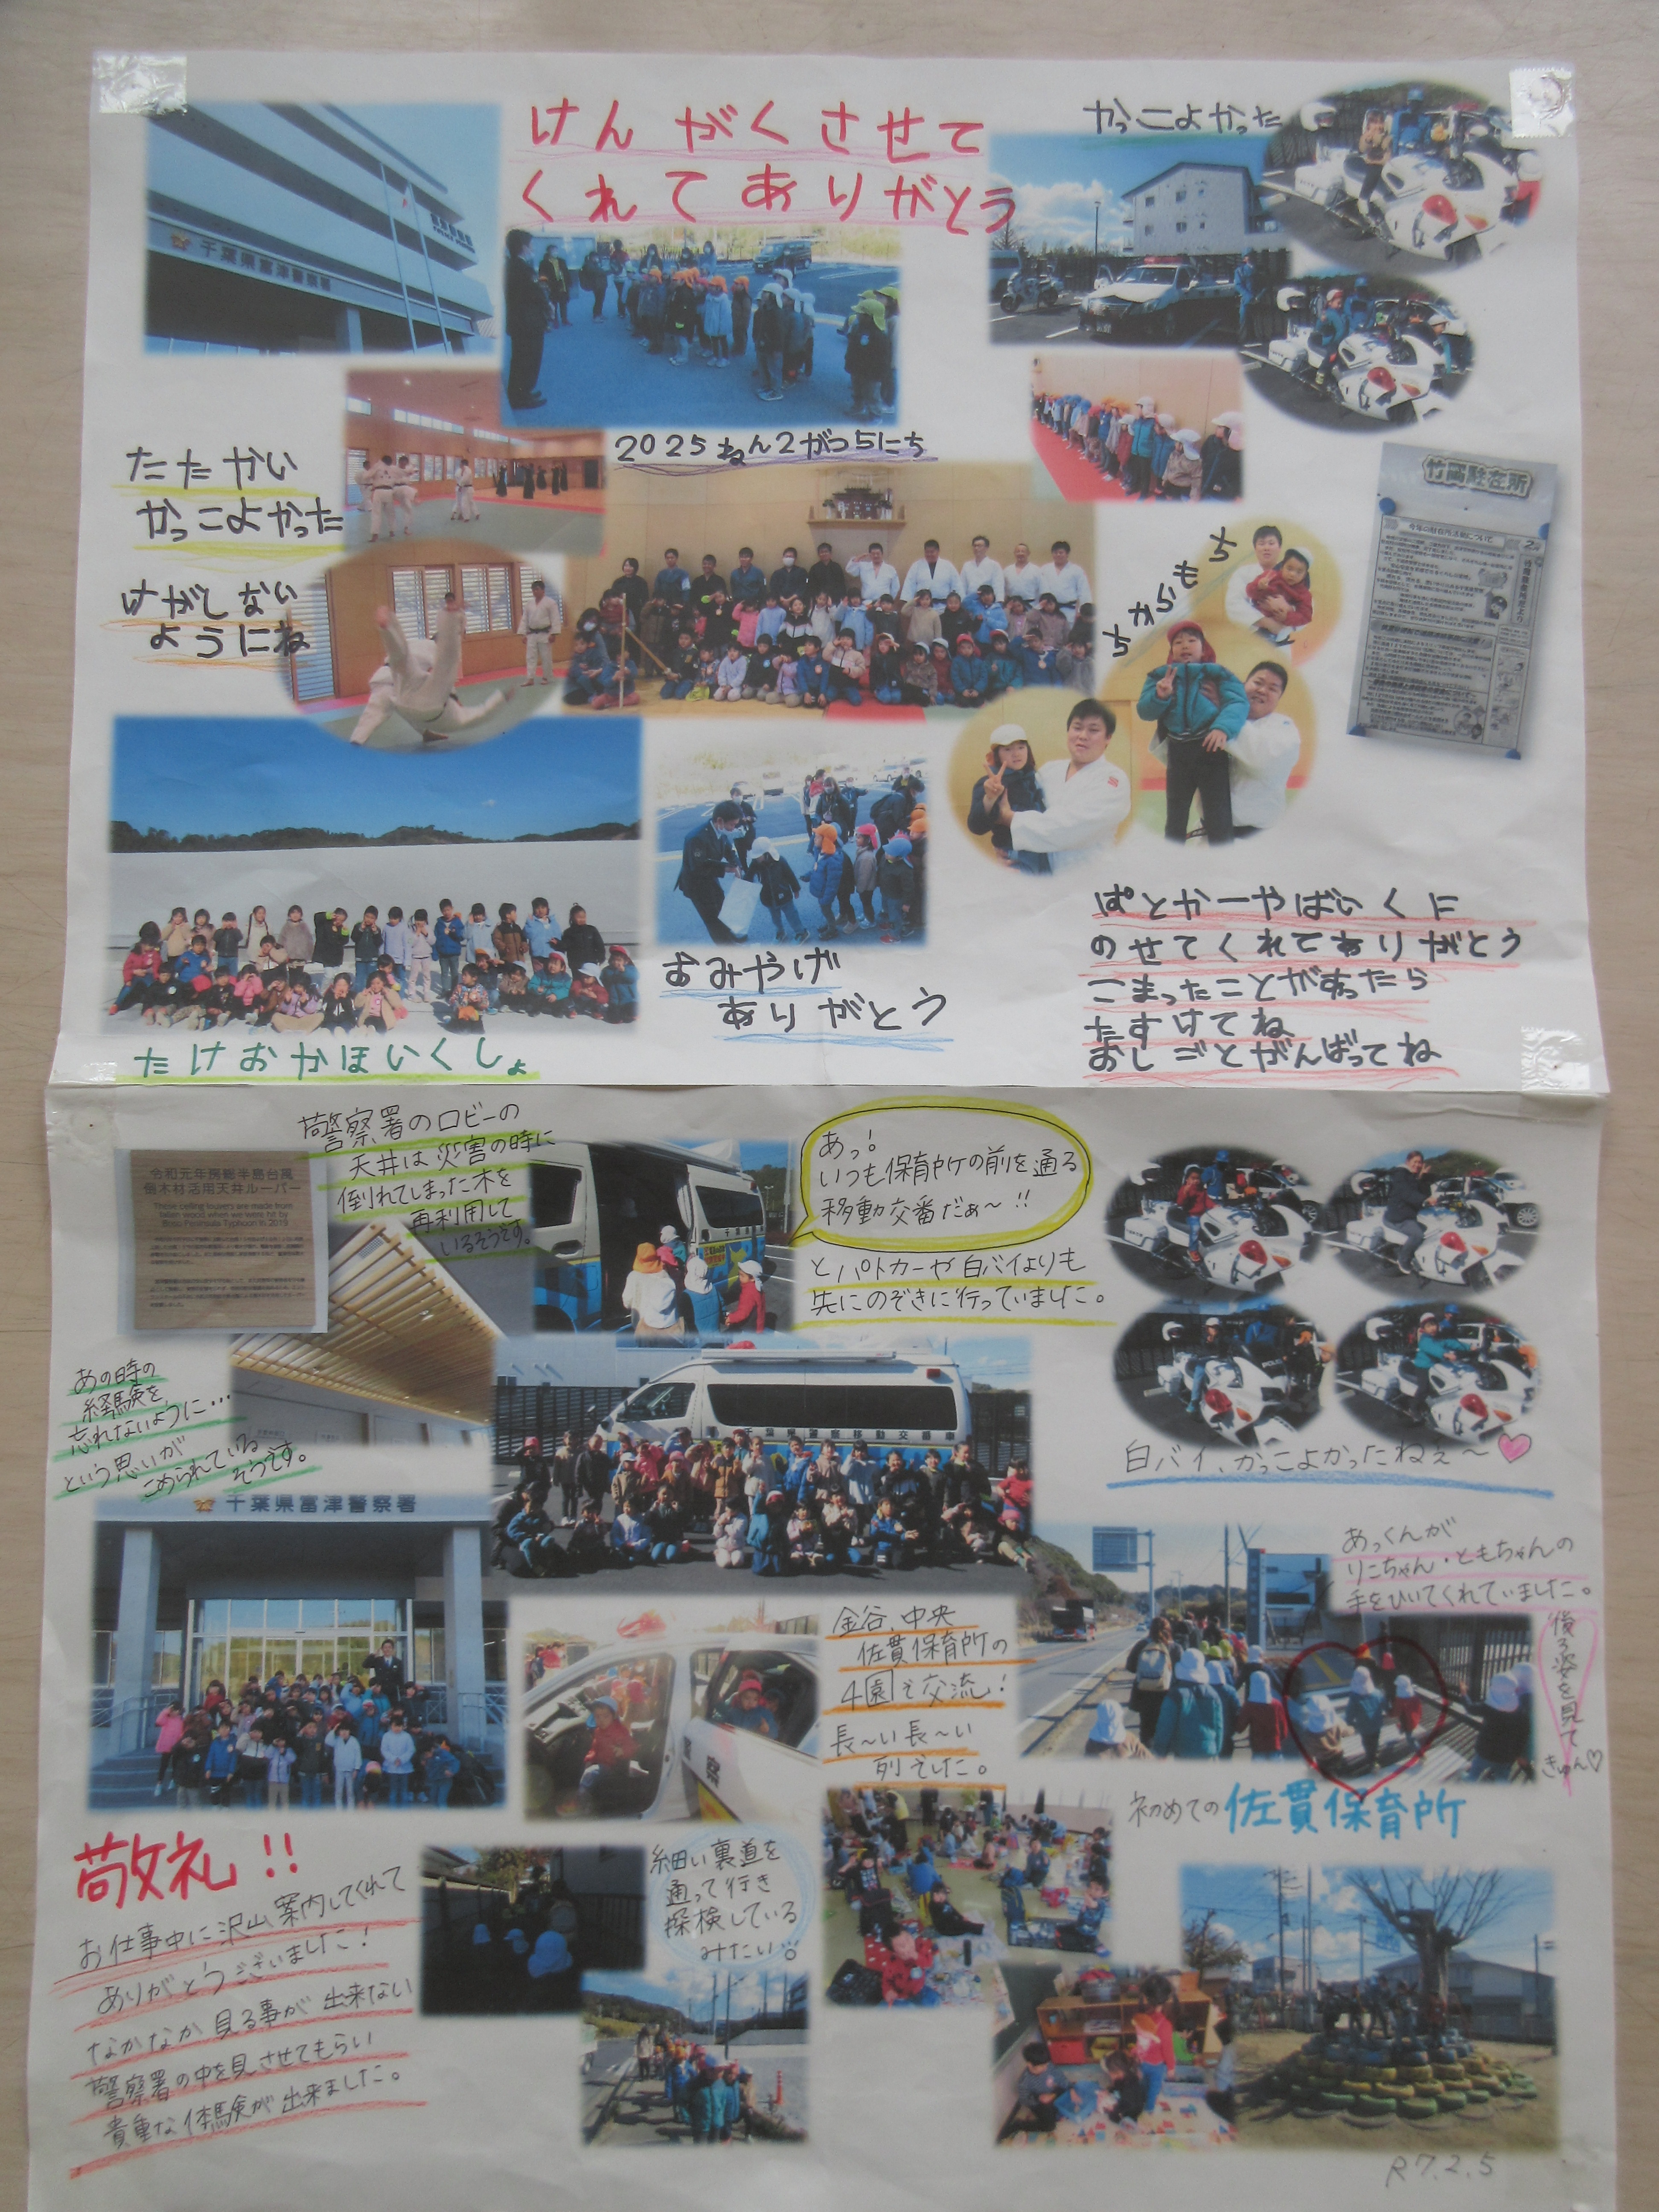 けんがくさせて
くれてありがとう
かっこよかった
千葉県富津警察署
2025ねん2がつ5にち
たたかい
かっこよかった
けがしない
ようにね
ちからもち
竹岡駐在所
おみやげ
ありがとう
ぱとかーやばいくに
のせてくれてありがとう
こまったことがあったら
たすけてね
おしごとがんばってね
たけおかほいくしょ
警察署のロビーの
天井は災害の時に
倒れてしまった木を
再利用して
いるそうです。
令和元年房総半島台風
倒木材活用天井ルーバー
These ceiling louvers are made from
fallen wood when we were hit by
Boso Peninsula Typhoon in 2019
あっ!
いつも保育所の前を通る
移動交番だぁ～!!
とパトカーや白バイよりも
先にのぞきに行っていました。
あの時の
経験を
忘れないように…
という思いが
こめられている
そうです。
千葉県警察移動交番車
白バイ、かっこよかったねぇ～♡
千葉県富津警察署
あっくんが
りこちゃん・ともちゃんの
手をひいてくれていました。
後ろ姿を見て
きゅん♡
金谷、中央
佐貫保育所の
4園で交流!
長～い長～い
列でした。
警察
初めての佐貫保育所
敬礼!!
お仕事中に沢山案内してくれて
ありがとうございました!
なかなか見る事が出来ない
警察署の中を見させてもらい
貴重な体験が出来ました。
細い裏道を
通って行き
探検している
みたい
R7.2.5